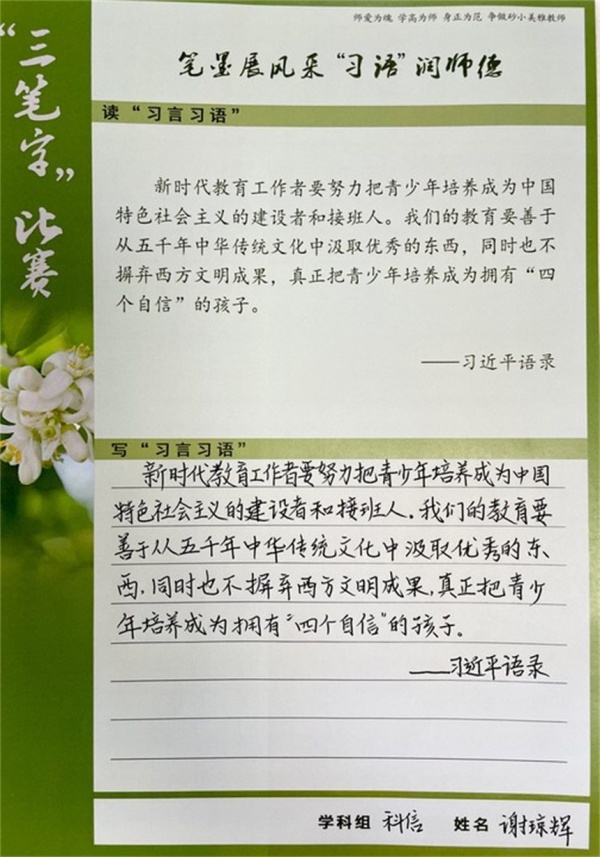 师爱为魂 学高为师 身正为范 争做砂小美雅教师
“三笔字”比赛
笔墨展风采“习语”润师德
读“习言习语”
新时代教育工作者要努力把青少年培养成为中国
特色社会主义的建设者和接班人。我们的教育要善于
从五千年中华传统文化中汲取优秀的东西，同时也不
摒弃西方文明成果，真正把青少年培养成为拥有“四
个自信”的孩子。
——习近平语录
写“习言习语”
新时代教育工作者要努力把青少年培养成为中国
特色社会主义的建设者和接班人.我们的教育要
善于从五千年中华传统文化中汲取优秀的东
西,同时也不摒弃西方文明成果,真正把青少
年培养成为拥有“四个自信”的孩子。
——习近平语录
学科组 科信 姓名 谢琼辉